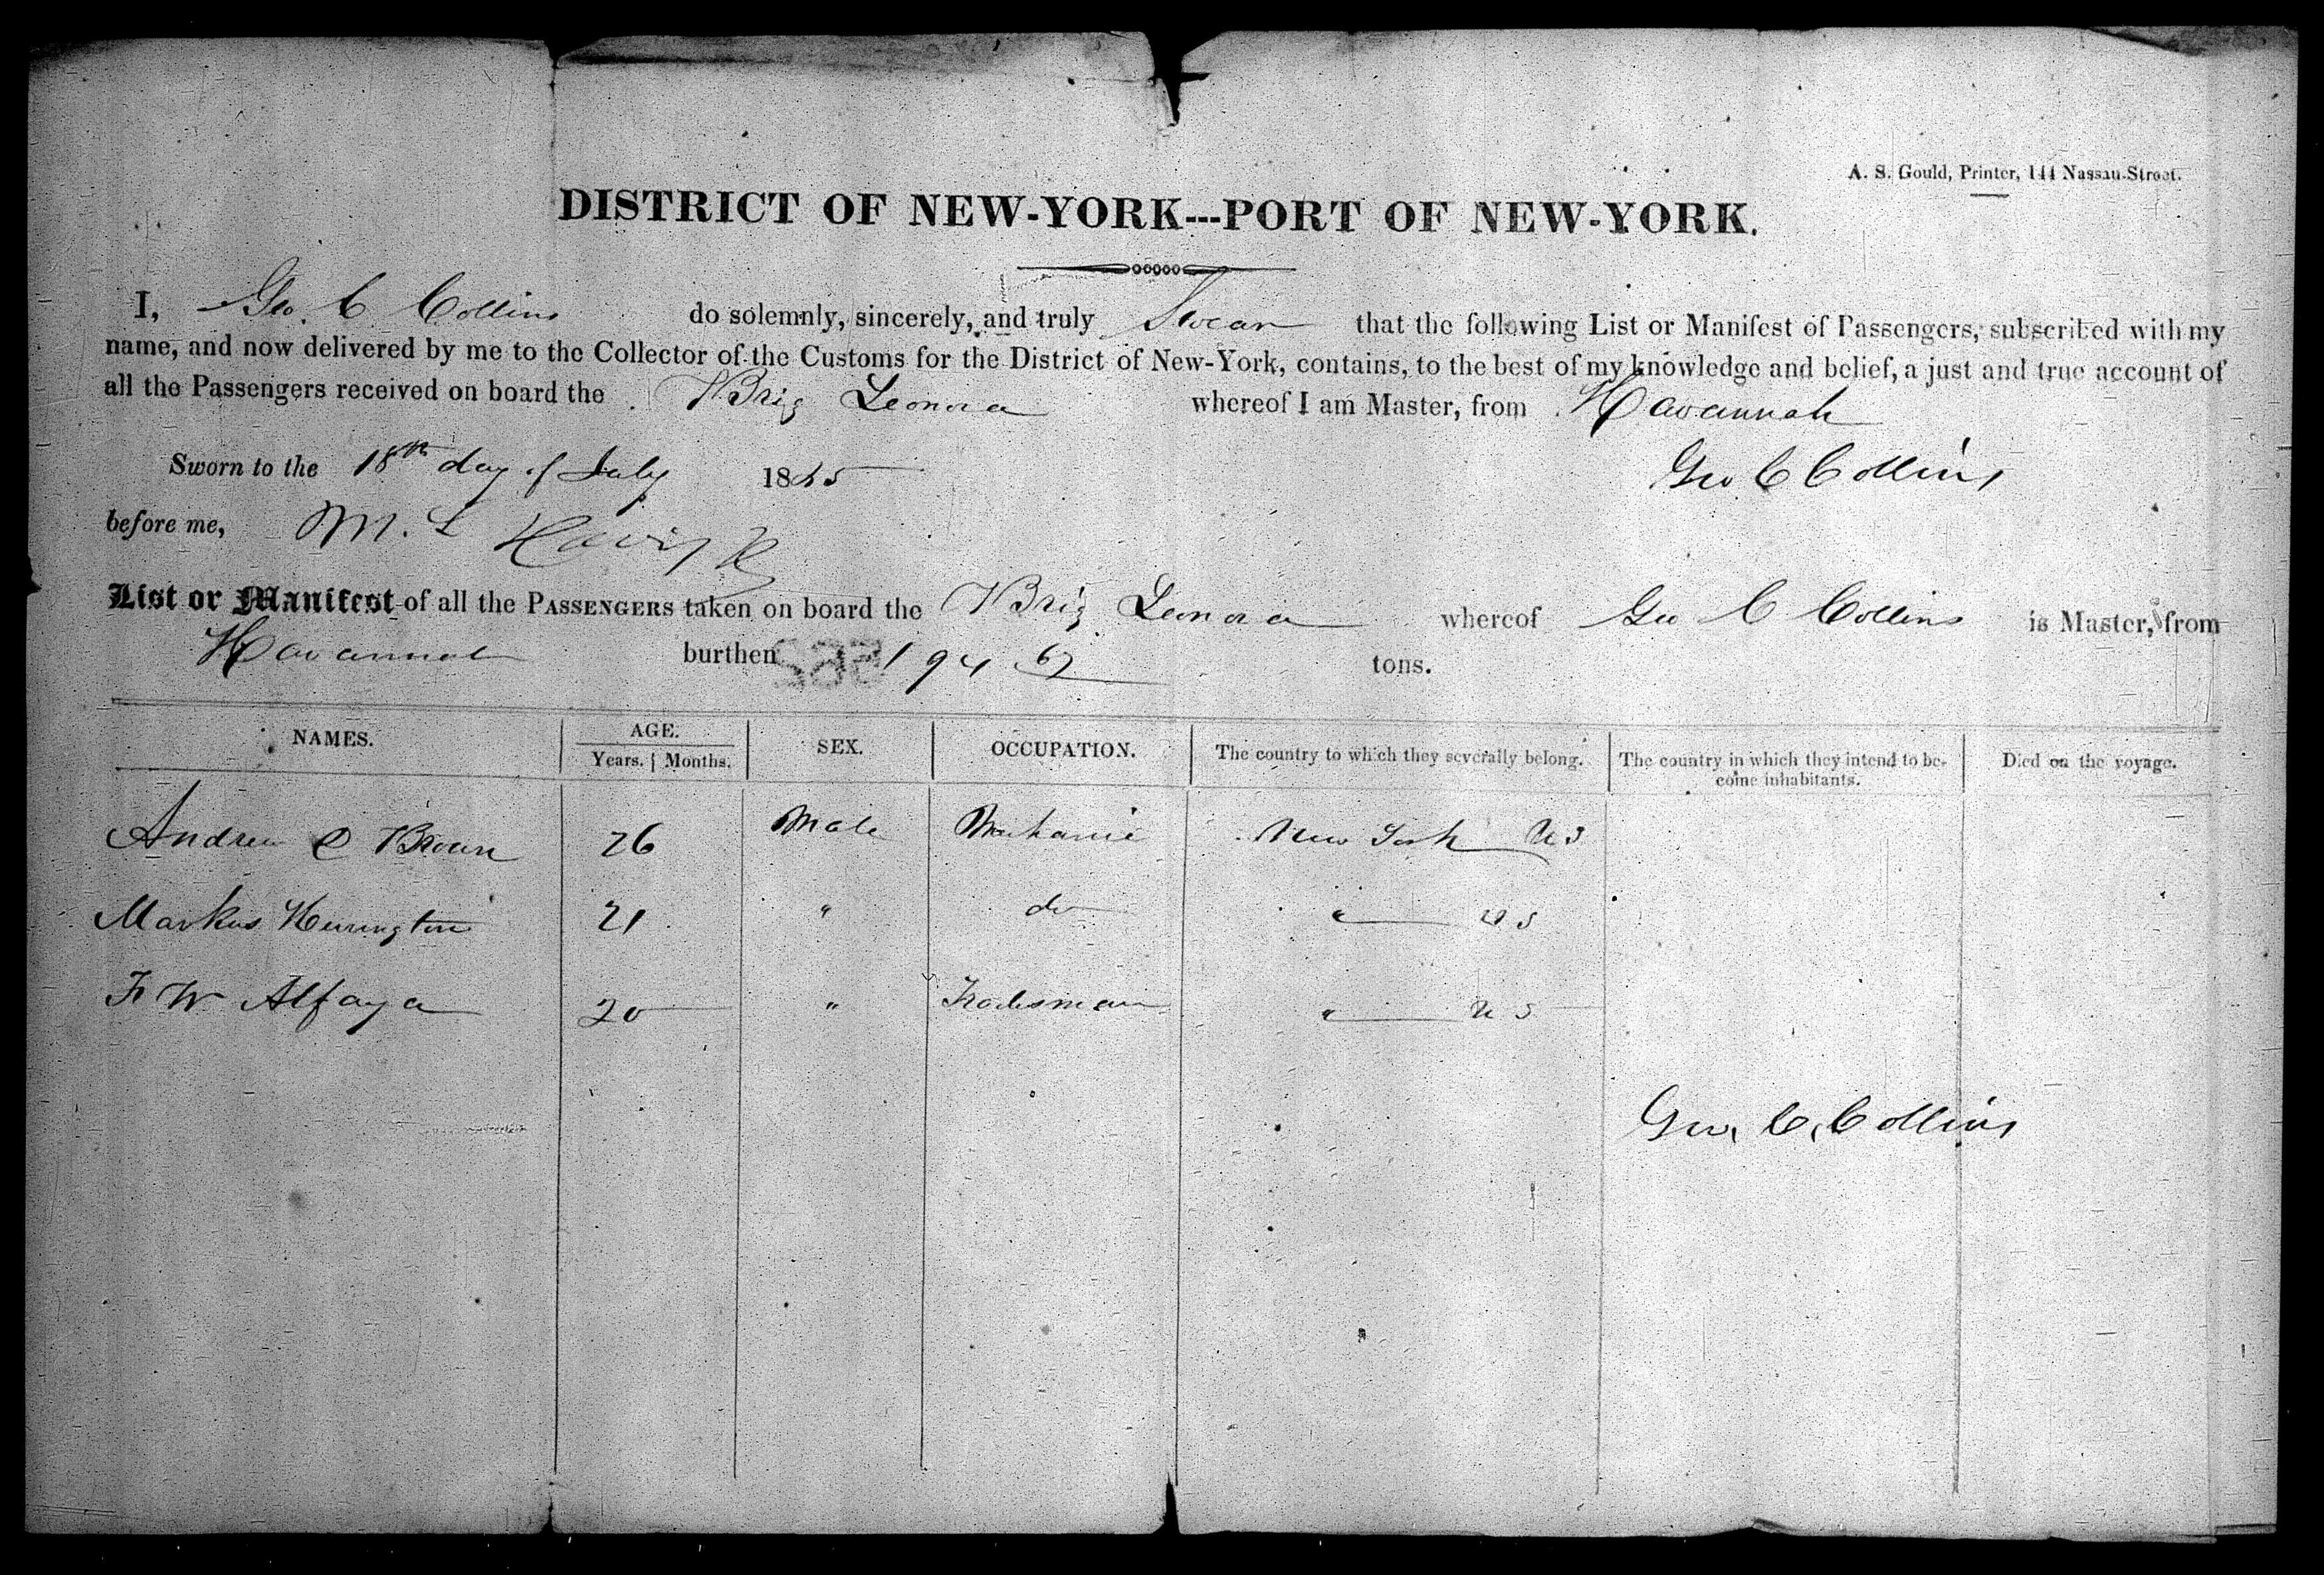 A. S. Gould, Printer, 144 Nassau-Street.
DISTRICT OF NEW-YORK---PORT OF NEW-YORK.
I, Geo. C Collins do solemnly, sincerely, and truly Swear that the following List or Manifest of Passengers, subscribed with my
name, and now delivered by me to the Collector of the Customs for the District of New-York, contains, to the best of my knowledge and belief, a just and true account of
all the Passengers received on board the Brig Leonora whereof I am Master, from Havannah
Sworn to the 18th day of July 18
Geo C Collins
before me, M. L
List or Manifest of all the PASSENGERS taken on board the Brig Leonora whereof Geo C Collins is Master, from
Havannah burthen 194 tons.
NAMES. AGE. SEX. OCCUPATION. The country to which they severally belong. The country in which they intend to be- Died on the voyage.
Years. Months. come inhabitants.
Andrew C Brown 26 Male Mechanic New York U S
Markus Herrington 21 " do " U S
F W Alfaya 20 " Tradesman " U S
Geo, C, Collins